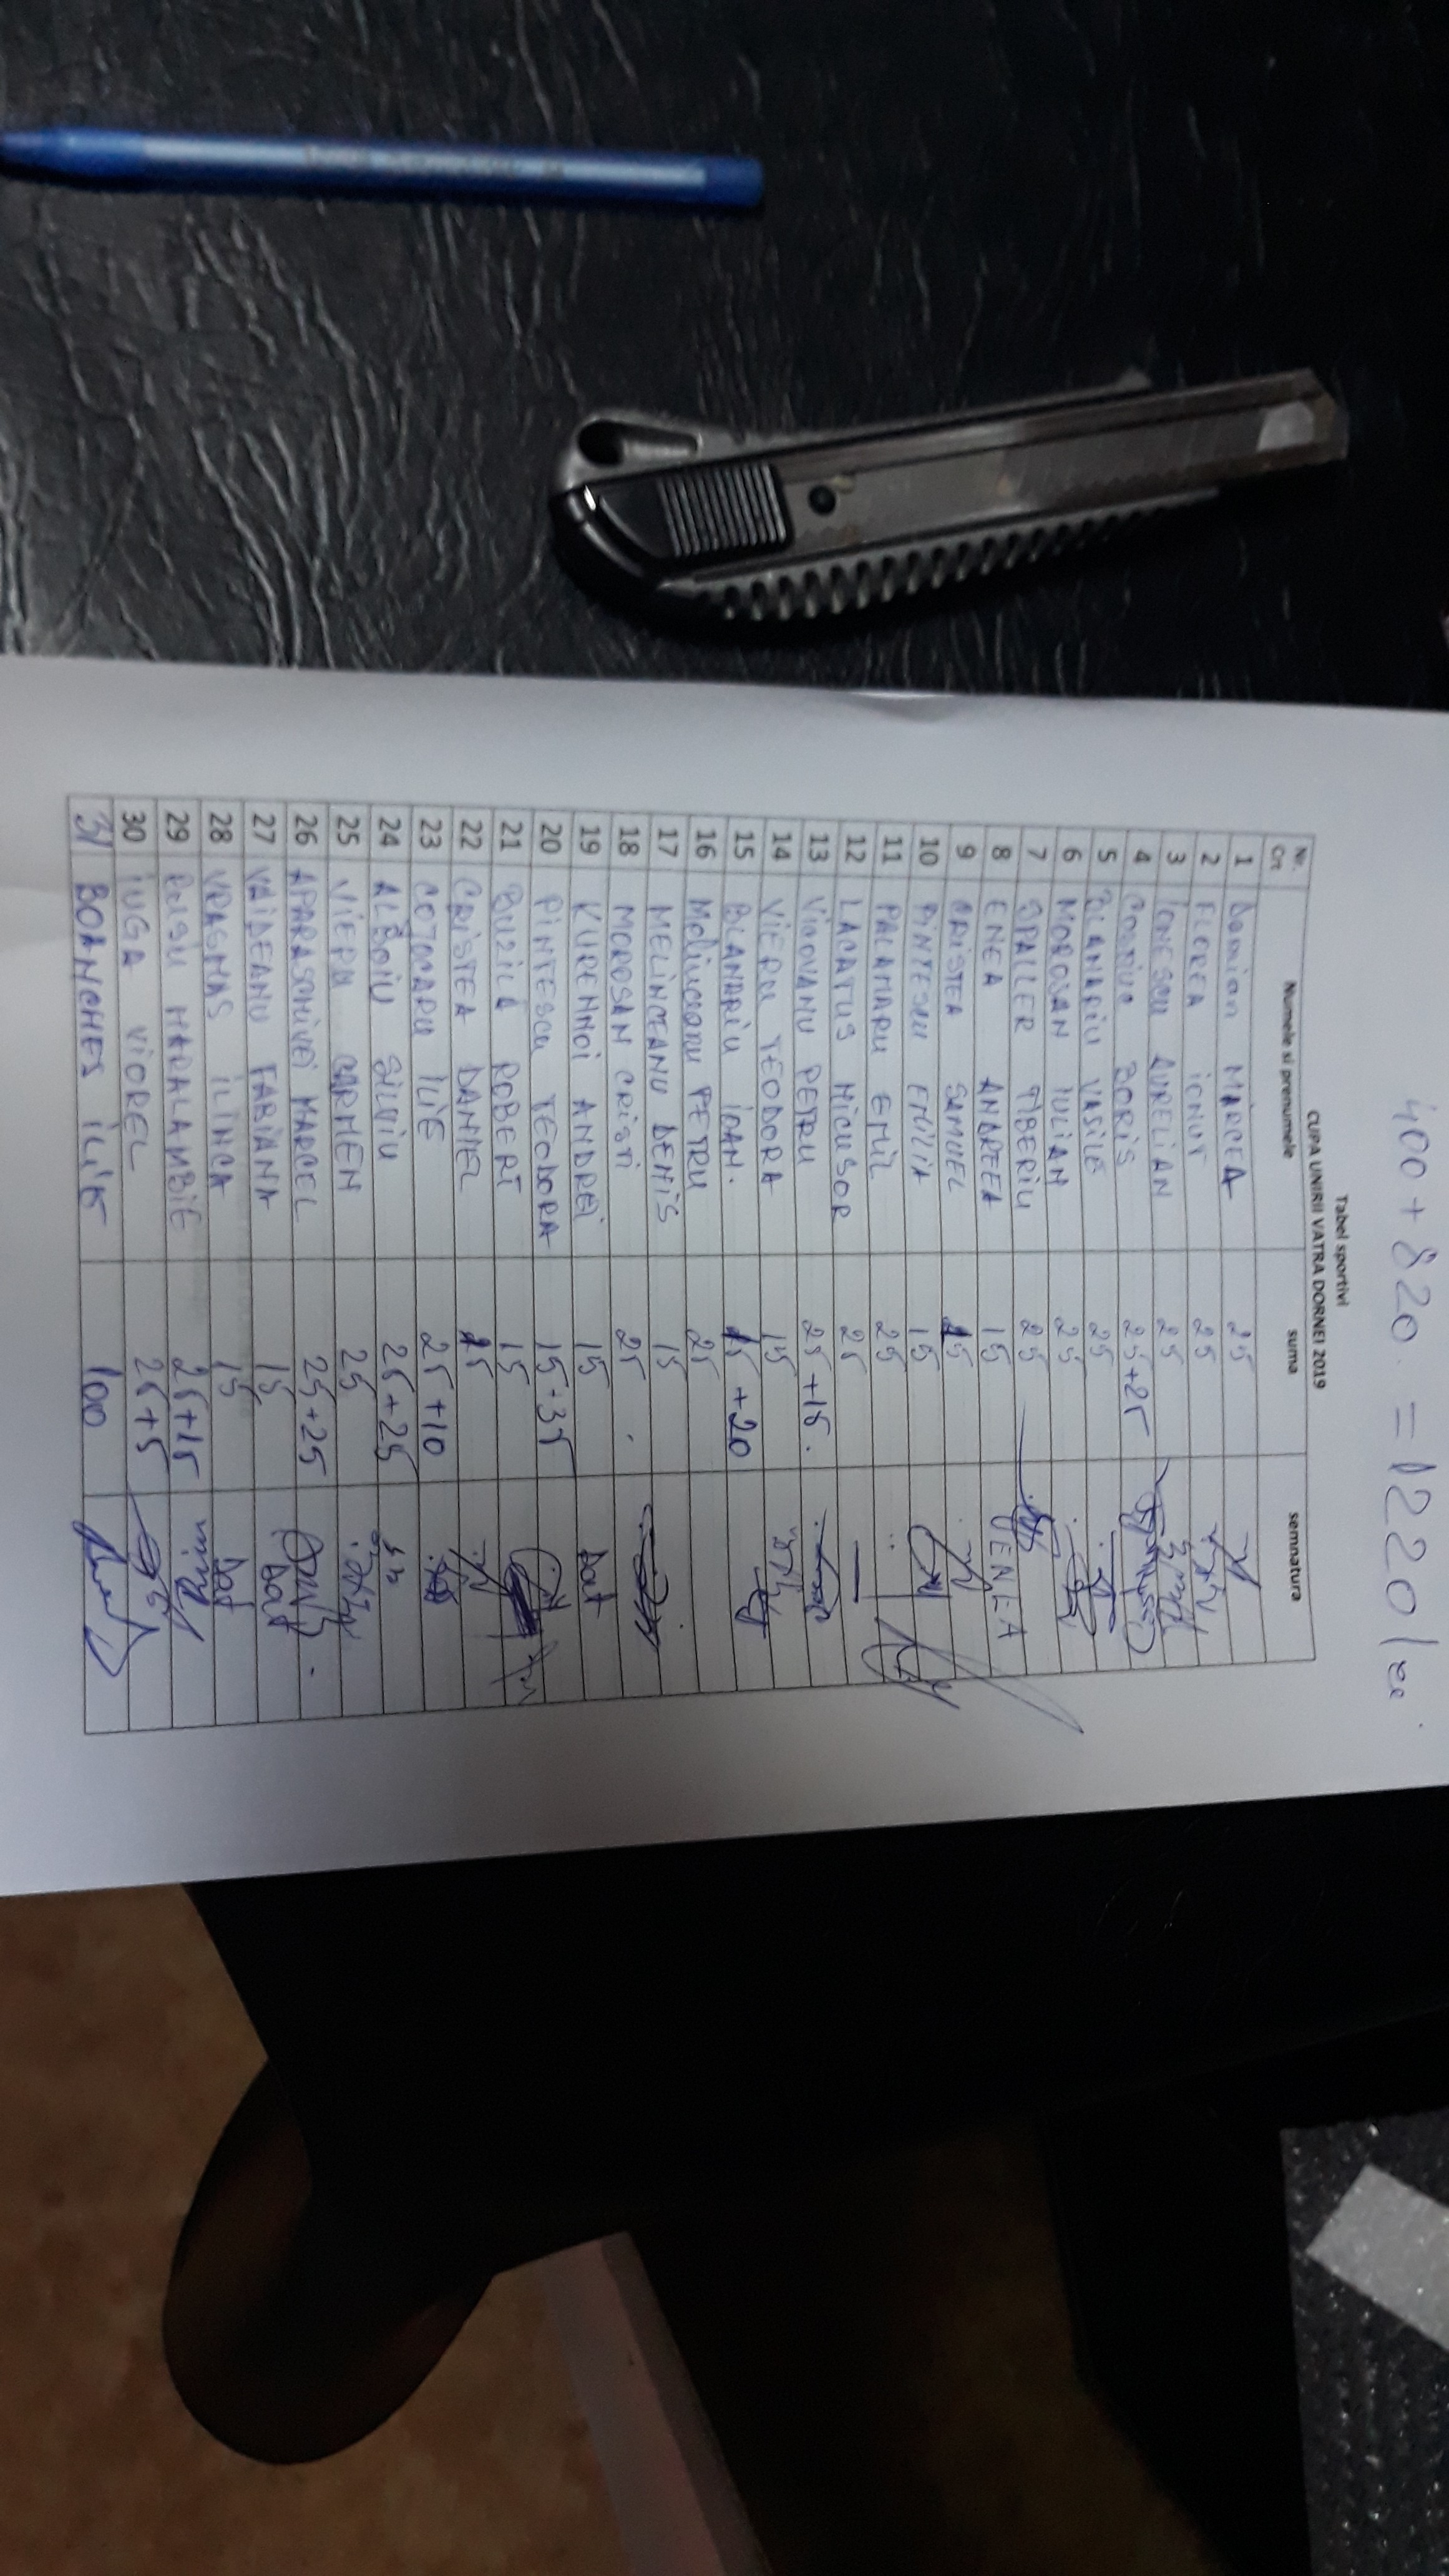 400 + 820. = 1220 lei.
Tabel sportivi
CUPA UNIRII VATRA DORNEI 2019
Nr. Crt Numele si prenumele suma semnatura
1 Damian MIRCEA 25
2 FLOREA IONUT 25
3 IONESCU AURELIAN 25
4 COSTIUC BORIS 25+25
5 BLANARIU VASILE 25
6 MOROSAN IULIAN 25
7 SPALLER TIBERIU 25
8 ENEA ANDREEA 15 ENEA
9 CRISTEA SAMUEL 15
10 PINTESCU EMILIA 15
11 PALAMARU EMIL 25
12 LACATUS NICUSOR 25
13 VICOVANU PETRU 25+15.
14 VIERU TEODORA 15
15 BLANARIU IOAN. 15+20
16 Melinceanu PETRU 25
17 MELINCEANU DENIS 15
18 MOROSAN CRISTI 25.
19 KURENNOI ANDREI 15
20 PINTESCU TEODORA 15+35
21 BUZILA ROBERT 15
22 CRISTEA DANIEL 25
23 COJOCARU ILIE 25+10
24 ALBOIU SILVIU 25+25
25 VIERU CARMEN 25
26 APARASCHIVEI MARCEL 25+25
27 VAIDEANU FABIANA 15
28 VRASMAS ILINCA 15
29 RUSU HARALAMBIE 25+15
30 IUGA VIOREL 25+5
31 BOANCHES ILIE 100